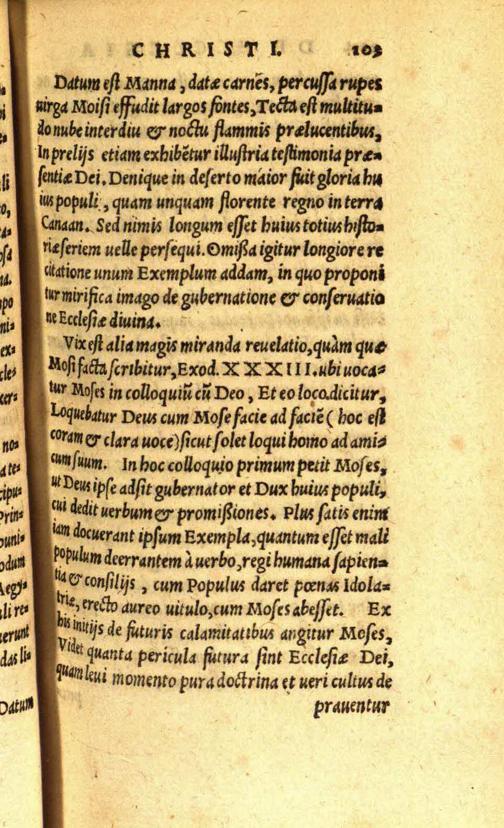 CHRISTI. 103
Datum est Manna, datæ carnẽs, percussa rupes
uirga Moisi effudit largos fontes, Tecta est multitu-
do nube interdiu & noctu flammis prælucentibus,
In prelijs etiam exhibẽtur illustria testimonia præ-
sentiæ Dei. Denique in deserto maior fuit gloria hu
ius populi, quam unquam florente regno in terra
Canaan. Sed nimis longum esset huius totius histo-
riæ seriem uelle persequi. Omißa igitur longiore re
citatione unum Exemplum addam, in quo proponi
tur mirifica imago de gubernatione & conseruatio
ne Ecclesiæ diuina.
Vix est alia magis miranda reuelatio, quàm quæ
Mosi facta scribitur, Exod. XXXIII. ubi uoca-
tur Moses in colloquiũ cũ Deo, Et eo loco dicitur,
Loquebatur Deus cum Mose facie ad faciẽ (hoc est
coram & clara uoce) sicut solet loqui homo ad ami-
cum suum. In hoc colloquio primum petit Moses,
ut Deus ipse adsit gubernator et Dux huius populi,
cui dedit uerbum & promißiones. Plus satis enim
iam docuerant ipsum Exempla, quantum esset mali
populum deerrantem à uerbo, regi humana sapien-
tia & consilijs, cum Populus daret pœnas Idola-
triæ, erecto aureo uitulo, cum Moses abesset. Ex
his initijs de futuris calamitatibus angitur Moses,
Videt quanta pericula futura sint Ecclesiæ Dei,
quam leui momento pura doctrina et ueri cultus de
prauentur
Datum